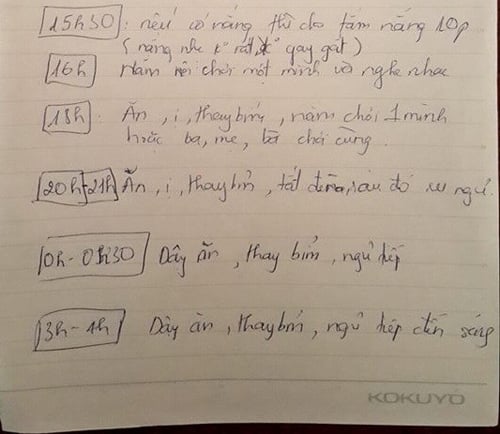 15h30 : nếu có nắng thì cho tắm nắng 10p
( nắng nhẹ k° rát, k° gay gắt )
16h nằm nôi chơi một mình và nghe nhạc
18h : Ăn , ị , thay bỉm , nằm chơi 1 mình
hoặc ba, mẹ, bà chơi cùng .
20h - 21h Ăn , ị , thay bỉm , tắt đèn, sau đó ru ngủ
0h - 0h30 Dậy ăn , thay bỉm , ngủ tiếp
3h - 4h Dậy ăn , thay bỉm , ngủ tiếp đến sáng
KOKUYO